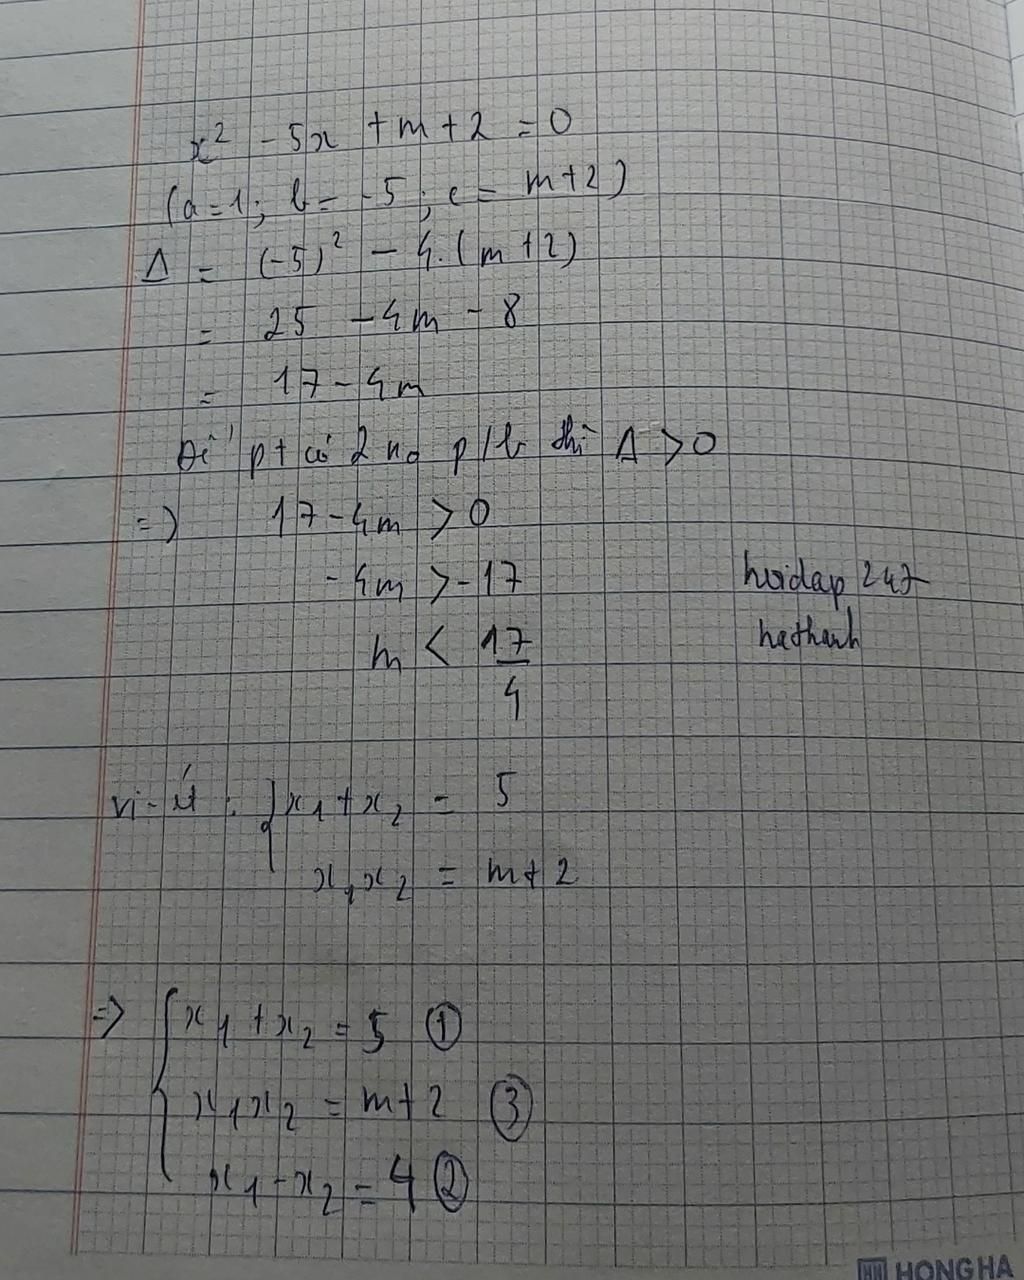 x² - 5x + m + 2 = 0
(a = 1; b = -5; c = m + 2)
Δ = (-5)² - 4.(m + 2)
= 25 - 4m - 8
= 17 - 4m
Để pt có 2 no p/b thì Δ > 0
=> 17 - 4m > 0
- 4m > - 17
hoidap 247
m < 17/4
hathanh
vi-ét : { x₁ + x₂ = 5
x₁x₂ = m + 2
=> { x₁ + x₂ = 5 ①
x₁x₂ = m + 2 ③
x₁ - x₂ = 4 ②
HONG HA